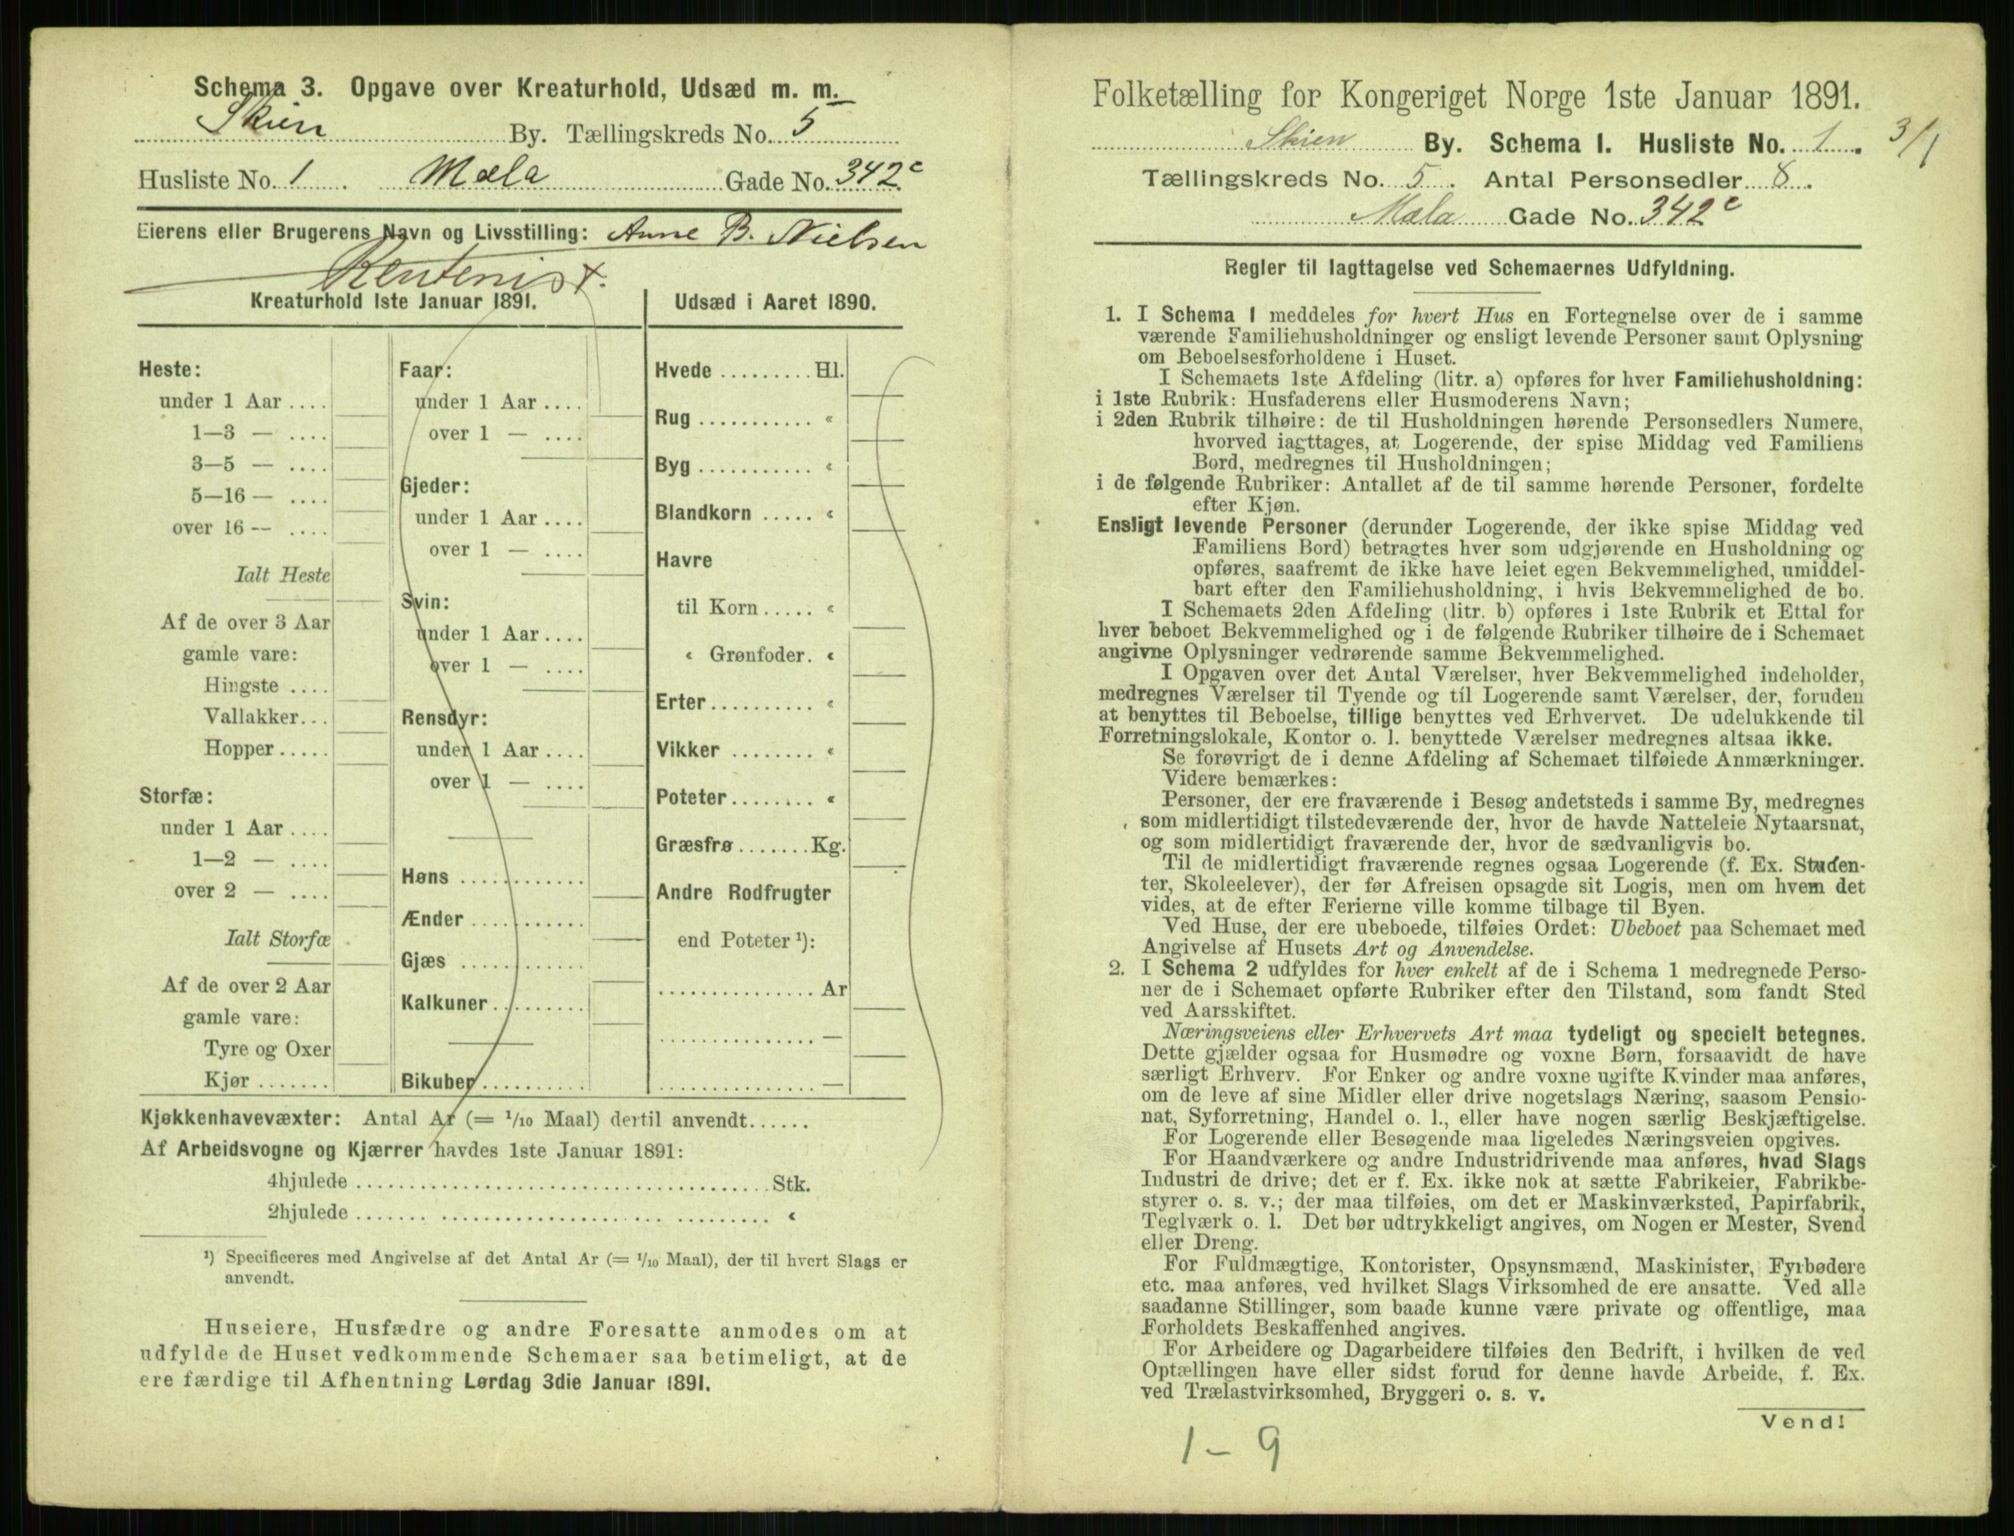 Schema 3. Opgave over Kreaturhold, Udsæd m. m.
Skien By. Tællingskreds No. 5
Husliste No. 1 . Mæla Gade No. 342c
Eierens eller Brugerens Navn og Livsstilling: Anne B. Nielsen
Rentenist.
Kreaturhold 1ste Januar 1891.
Heste:
under 1 Aar ....
1—3 — ....
3—5 — ....
5—16 — ....
over 16 -- ....
Ialt Heste
Af de over 3 Aar
gamle vare:
Hingste ....
Vallakker...
Hopper.....
Storfæ:
under 1 Aar ....
1—2 — ....
over 2 — ....
Ialt Storfæ
Af de over 2 Aar
gamle vare:
Tyre og Oxer
Kjør.......
Faar:
under 1 Aar ....
over 1 — ....
Gjeder:
under 1 Aar ....
over 1 — ....
Svin:
under 1 Aar ....
over 1 — ....
Rensdyr:
under 1 Aar ....
over 1 — ....
Høns ............
Ænder ...........
Gjæs ............
Kalkuner.........
Bikuber..........
Udsæd i Aaret 1890.
Hvede ......... Hl.
Rug ........... «
Byg ........... «
Blandkorn ..... «
Havre
til Korn..... «
« Grønfoder. «
Erter.......... «
Vikker ........ «
Poteter........ «
Græsfrø.......Kg.
Andre Rodfrugter
end Poteter ¹):
............... Ar
............... —
............... —
Kjøkkenhavevæxter: Antal Ar (= 1/10 Maal) dertil anvendt......
Af Arbeidsvogne og Kjærrer havdes 1ste Januar 1891:
4hjulede ........................................Stk.
2hjulede ....... ..................... ......... «
¹) Specificeres med Angivelse af det Antal Ar (= 1/10 Maal), der til hvert Slags er
anvendt.
Huseiere, Husfædre og andre Foresatte anmodes om at
udfylde de Huset vedkommende Schemaer saa betimeligt, at de
ere færdige til Afhentning Lørdag 3die Januar 1891.
Folketælling for Kongeriget Norge 1ste Januar 1891.
Skien By. Schema I. Husliste No. 1 . 3/1
Tællingskreds No. 5 . Antal Personsedler 8 .
Mæla Gade No. 342c
Regler til Iagttagelse ved Schemaernes Udfyldning.
1. I Schema I meddeles for hvert Hus en Fortegnelse over de i samme
værende Familiehusholdninger og ensligt levende Personer samt Oplysning
om Beboelsesforholdene i Huset.
I Schemaets 1ste Afdeling (litr. a) opføres for hver Familiehusholdning:
i 1ste Rubrik: Husfaderens eller Husmoderens Navn;
i 2den Rubrik tilhøire: de til Husholdningen hørende Personsedlers Numere,
hvorved iagttages, at Logerende, der spise Middag ved Familiens
Bord, medregnes til Husholdningen;
i de følgende Rubriker: Antallet af de til samme hørende Personer, fordelte
efter Kjøn.
Ensligt levende Personer (derunder Logerende, der ikke spise Middag ved
Familiens Bord) betragtes hver som udgjørende en Husholdning og
opføres, saafremt de ikke have leiet egen Bekvemmelighed, umiddel-
bart efter den Familiehusholdning, i hvis Bekvemmelighed de bo.
I Schemaets 2den Afdeling (litr. b) opføres i 1ste Rubrik et Ettal for
hver beboet Bekvemmelighed og i de følgende Rubriker tilhøire de i Schemaet
angivne Oplysninger vedrørende samme Bekvemmelighed.
I Opgaven over det Antal Værelser, hver Bekvemmelighed indeholder,
medregnes Værelser til Tyende og til Logerende samt Værelser, der, foruden
at benyttes til Beboelse, tillige benyttes ved Erhvervet. De udelukkende til
Forretningslokale, Kontor o. l. benyttede Værelser medregnes altsaa ikke.
Se forøvrigt de i denne Afdeling af Schemaet tilføiede Anmærkninger.
Videre bemærkes:
Personer, der ere fraværende i Besøg andetsteds i samme By, medregnes
som midlertidigt tilstedeværende der, hvor de havde Natteleie Nytaarsnat,
og som midlertidigt fraværende der, hvor de sædvanligvis bo.
Til de midlertidigt fraværende regnes ogsaa Logerende (f. Ex. Studen-
ter, Skoleelever), der før Afreisen opsagde sit Logis, men om hvem det
vides, at de efter Ferierne ville komme tilbage til Byen.
Ved Huse, der ere ubeboede, tilføies Ordet: Ubeboet paa Schemaet med
Angivelse af Husets Art og Anvendelse.
2. I Schema 2 udfyldes for hver enkelt af de i Schema 1 medregnede Perso-
ner de i Schemaet opførte Rubriker efter den Tilstand, som fandt Sted
ved Aarsskiftet.
Næringsveiens eller Erhvervets Art maa tydeligt og specielt betegnes.
Dette gjælder ogsaa for Husmødre og voxne Børn, forsaavidt de have
særligt Erhverv. For Enker og andre voxne ugifte Kvinder maa anføres,
om de leve af sine Midler eller drive nogetslags Næring, saasom Pensio-
nat, Syforretning, Handel o. l., eller have nogen særlig Beskjæftigelse.
For Logerende eller Besøgende maa ligeledes Næringsveien opgives.
For Haandværkere og andre Industridrivende maa anføres, hvad Slags
Industri de drive; det er f. Ex. ikke nok at sætte Fabrikeier, Fabrikbe-
styrer o. s. v.; der maa tilføies, om det er Maskinværksted, Papirfabrik,
Teglværk o. l. Det bør udtrykkeligt angives, om Nogen er Mester, Svend
eller Dreng.
For Fuldmægtige, Kontorister, Opsynsmænd, Maskinister, Fyrbødere
etc. maa anføres, ved hvilket Slags Virksomhed de ere ansatte. Ved alle
saadanne Stillinger, som baade kunne være private og offentlige, maa
Forholdets Beskaffenhed angives.
For Arbeidere og Dagarbeidere tilføies den Bedrift, i hvilken de ved
Optællingen have eller sidst forud for denne havde Arbeide, f. Ex.
ved Trælastvirksomhed, Bryggeri o. s. v.
Vend!
1 – 9